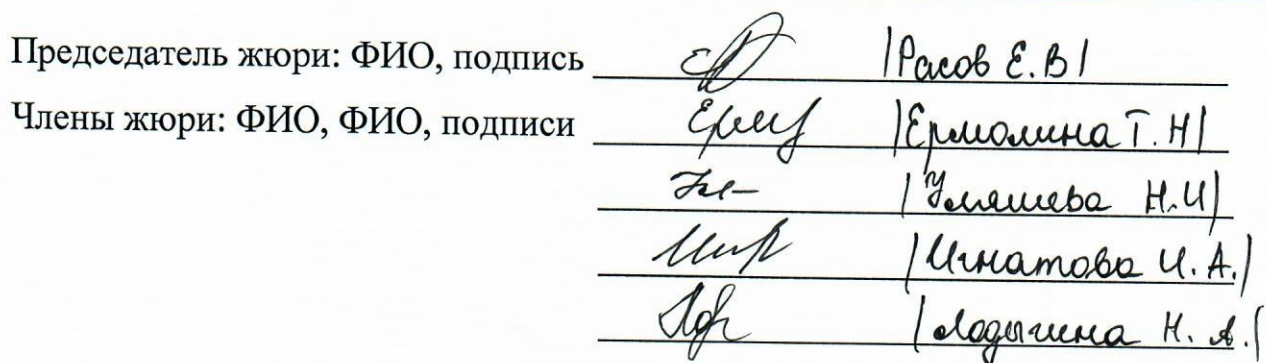 Председатель жюри: ФИО, подпись |Расов Е.В|
Члены жюри: ФИО, ФИО, подписи |Ермолина Т.Н|
|Уляшева Н.И|
|Игнатова И.А.|
|Лодыгина Н.А.|